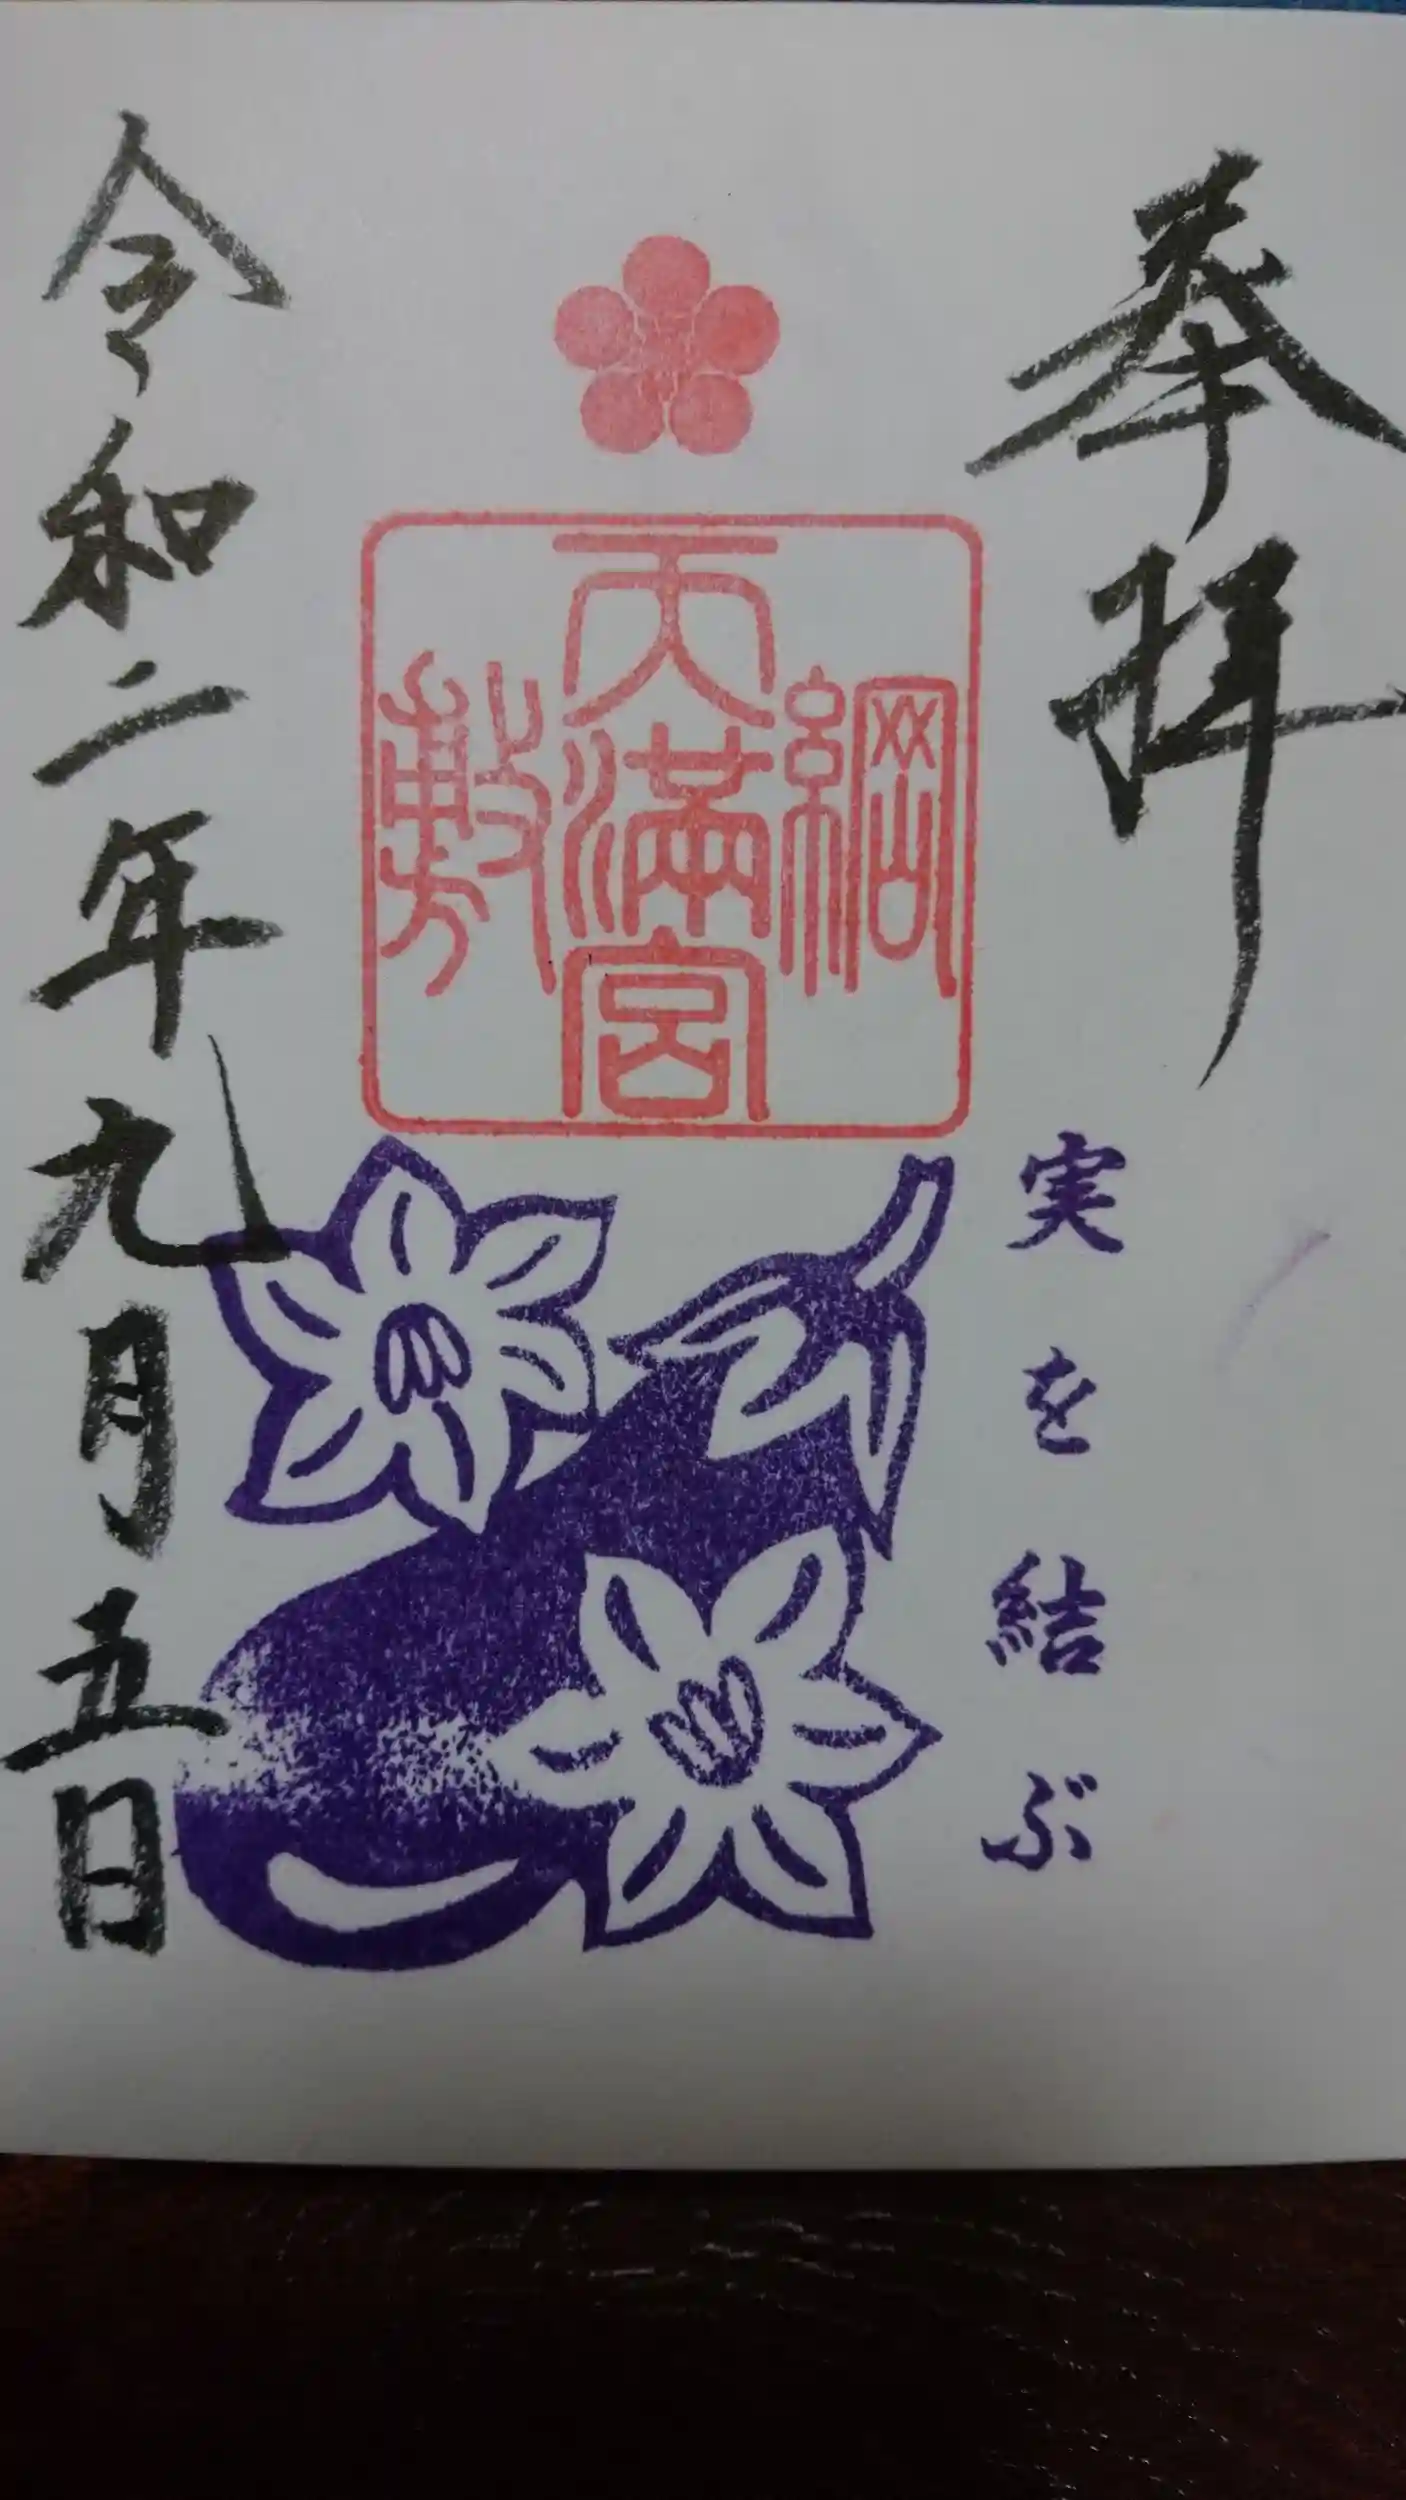 奉拝
実を結ぶ
綱敷
天満宮
令和二年九月五日